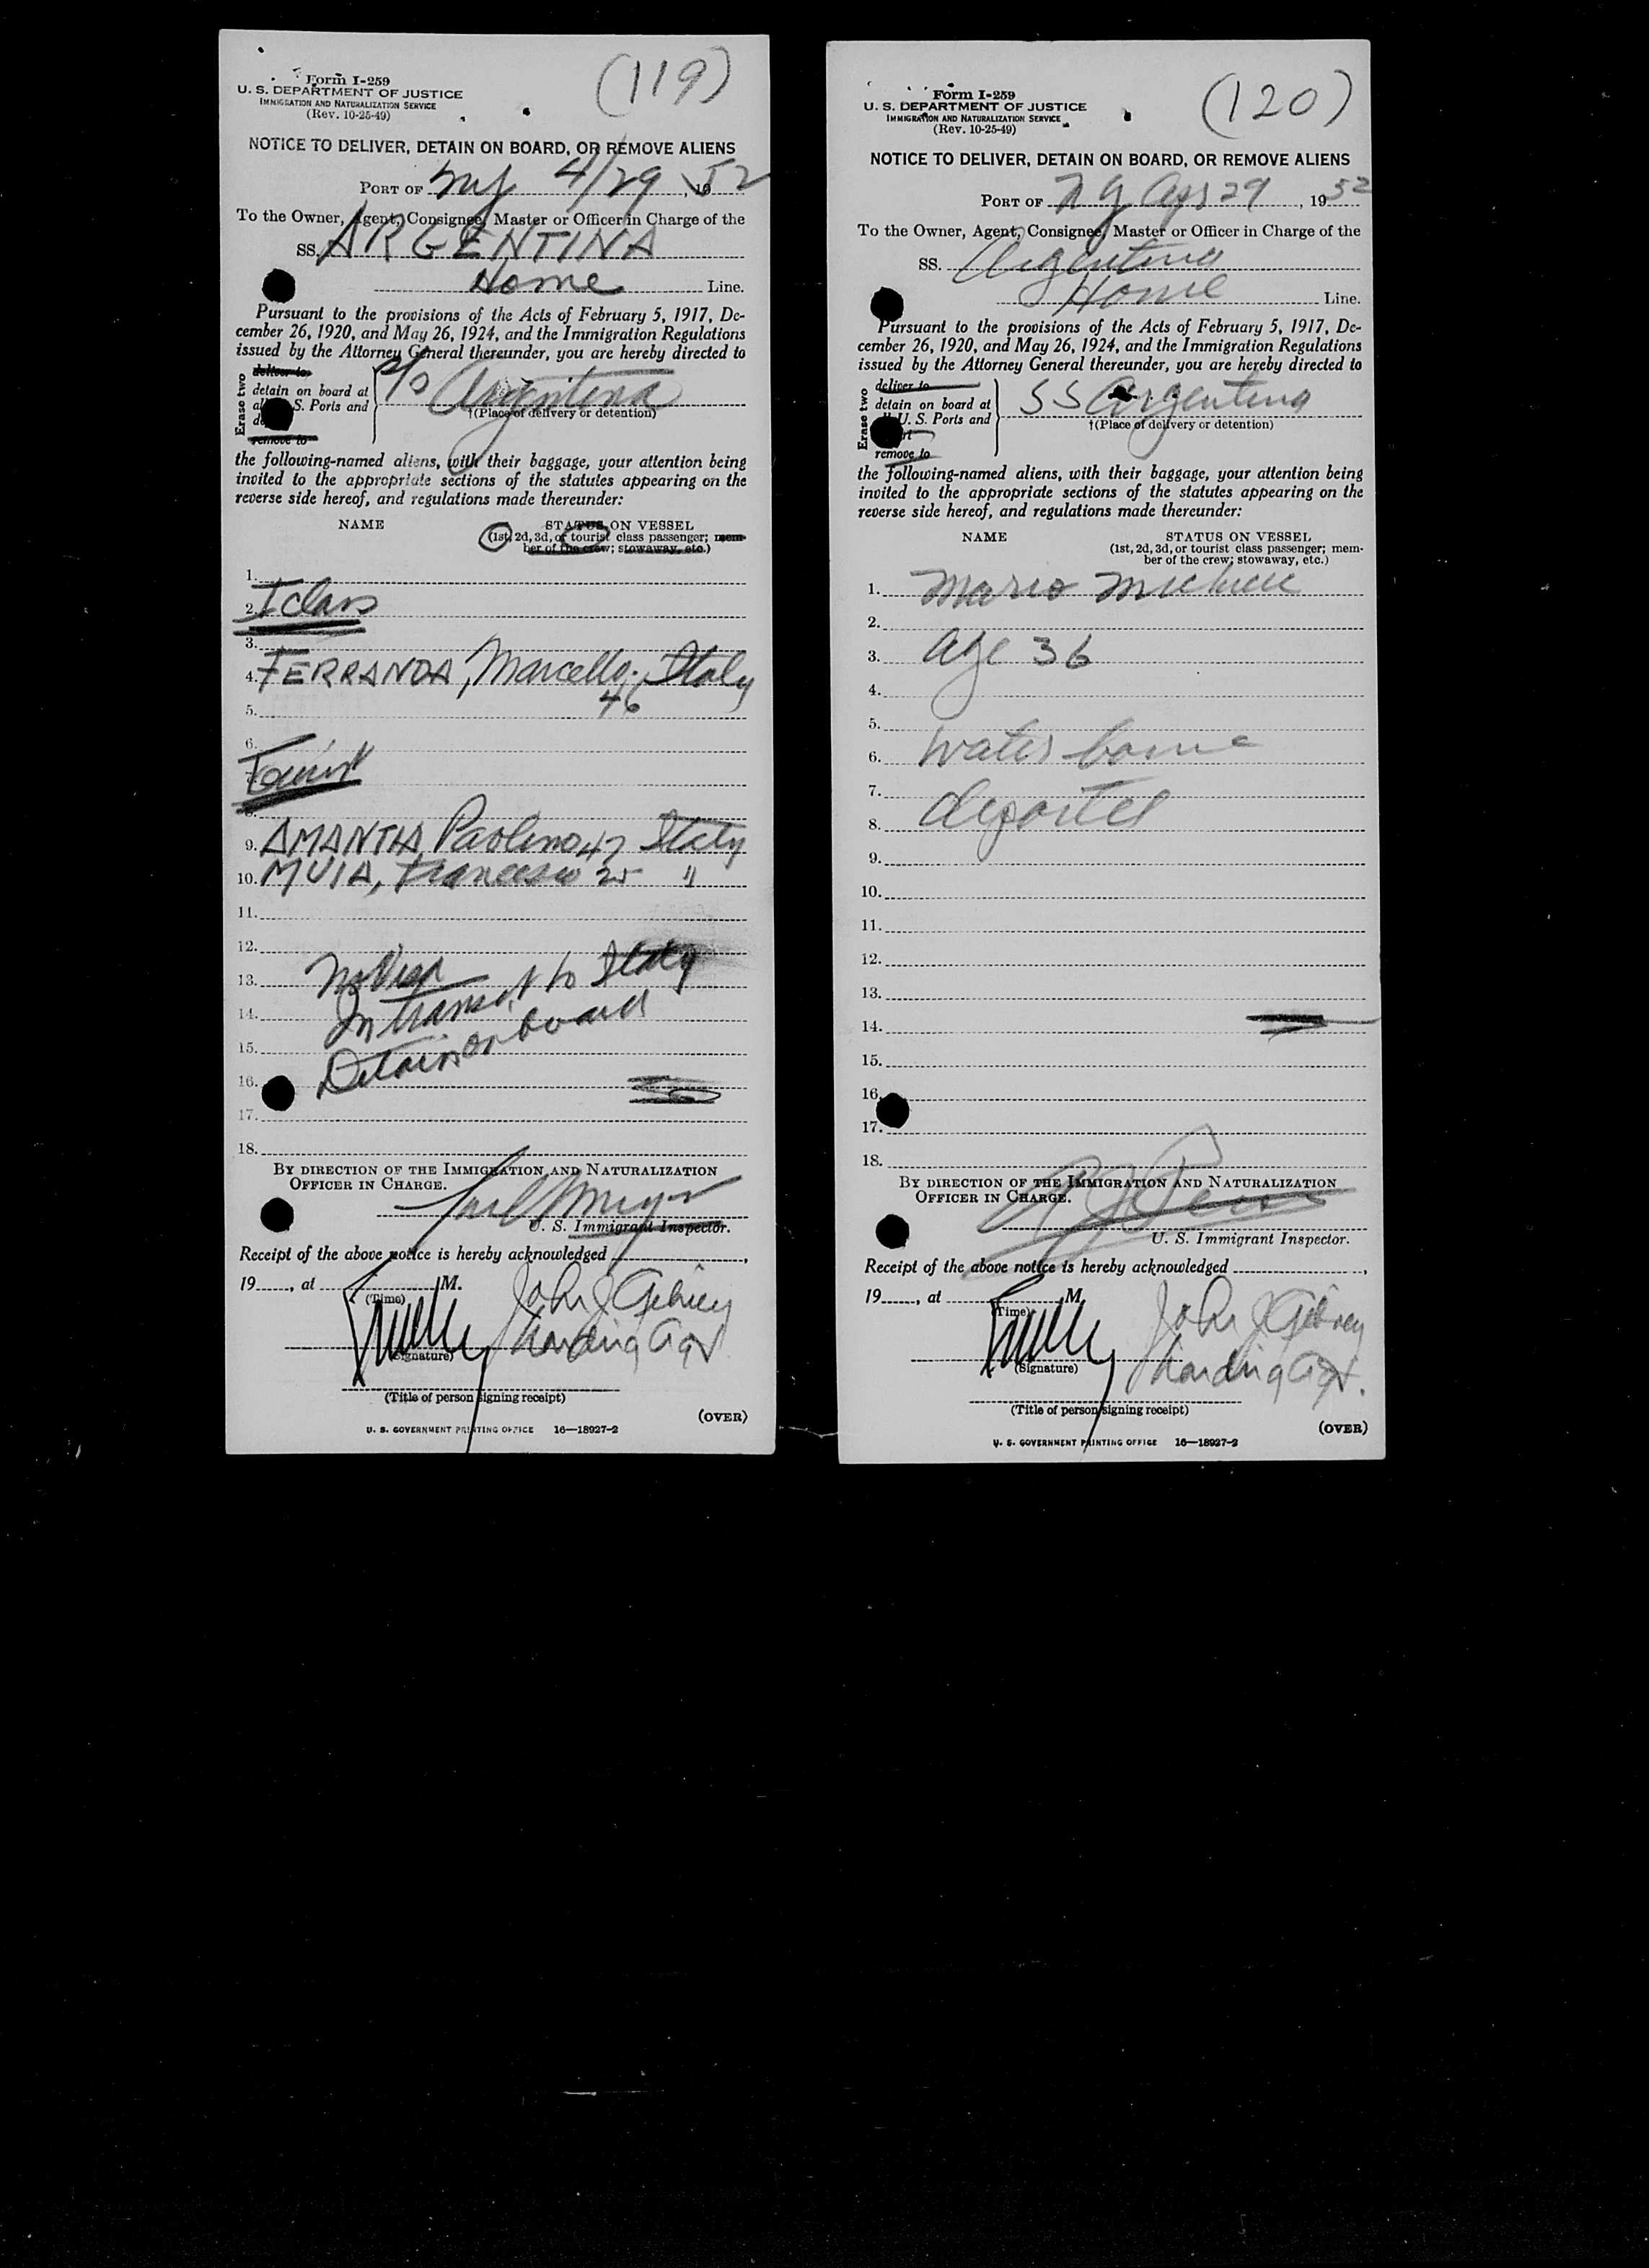 (119)
Form I-259
U. S. DEPARTMENT OF JUSTICE
IMMIGRATION AND NATURALIZATION SERVICE
(Rev. 10-25-49)
NOTICE TO DELIVER, DETAIN ON BOARD, OR REMOVE ALIENS
PORT OF NY 4/29, 1952
To the Owner, Agent, Consignee, Master or Officer in Charge of the
SS. ARGENTINA
Home Line.
Pursuant to the provisions of the Acts of February 5, 1917, De-
cember 26, 1920, and May 26, 1924, and the Immigration Regulations
issued by the Attorney General thereunder, you are hereby directed to
Erase two
deliver to
detain on board at
S. Ports and
remove to
S/S Argentina
†(Place of delivery or detention)
the following-named aliens, with their baggage, your attention being
invited to the appropriate sections of the statutes appearing on the
reverse side hereof, and regulations made thereunder:
NAME STATUS ON VESSEL
(1st, 2d, 3d, or tourist class passenger; mem-
ber of the crew; stowaway, etc.)
1.
2. I Class
3.
4. FERRANDA, Marcello. Italy
5. 46
6.
7. Tourist
8.
9. AMANTIA, Paolino 47 Italy
10. MUIA, Francesco 25 "
11.
12.
13. No Visa
14. In transit to Italy
15. Detain on board
16.
17.
18.
BY DIRECTION OF THE IMMIGRATION AND NATURALIZATION
OFFICER IN CHARGE.
U. S. Immigrant Inspector.
Receipt of the above notice is hereby acknowledged
19 , at M.
(Time)
John J Gibney
Landing Agt
(Signature)
(Title of person signing receipt)
(OVER)
U. S. GOVERNMENT PRINTING OFFICE 16—18927-2
(120)
Form I-259
U. S. DEPARTMENT OF JUSTICE
IMMIGRATION AND NATURALIZATION SERVICE
(Rev. 10-25-49)
NOTICE TO DELIVER, DETAIN ON BOARD, OR REMOVE ALIENS
PORT OF NY Apr 29, 1952
To the Owner, Agent, Consignee, Master or Officer in Charge of the
SS. Argentina
Home Line.
Pursuant to the provisions of the Acts of February 5, 1917, De-
cember 26, 1920, and May 26, 1924, and the Immigration Regulations
issued by the Attorney General thereunder, you are hereby directed to
Erase two
deliver to
detain on board at
U. S. Ports and
remove to
SS Argentina
†(Place of delivery or detention)
the following-named aliens, with their baggage, your attention being
invited to the appropriate sections of the statutes appearing on the
reverse side hereof, and regulations made thereunder:
NAME STATUS ON VESSEL
(1st, 2d, 3d, or tourist class passenger; mem-
ber of the crew; stowaway, etc.)
1. Mario
2.
3. Age 36
4.
5.
6. water borne
7.
8. deportee
9.
10.
11.
12.
13.
14.
15.
16.
17.
18.
BY DIRECTION OF THE IMMIGRATION AND NATURALIZATION
OFFICER IN CHARGE.
U. S. Immigrant Inspector.
Receipt of the above notice is hereby acknowledged
19 , at M.
(Time)
John J Gibney
Landing Agt.
(Signature)
(Title of person signing receipt)
(OVER)
U. S. GOVERNMENT PRINTING OFFICE 16—18927-2